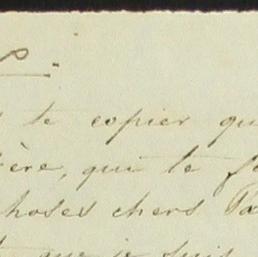 te copier qu
ère, qui te f
choses chers Pa
que je suis